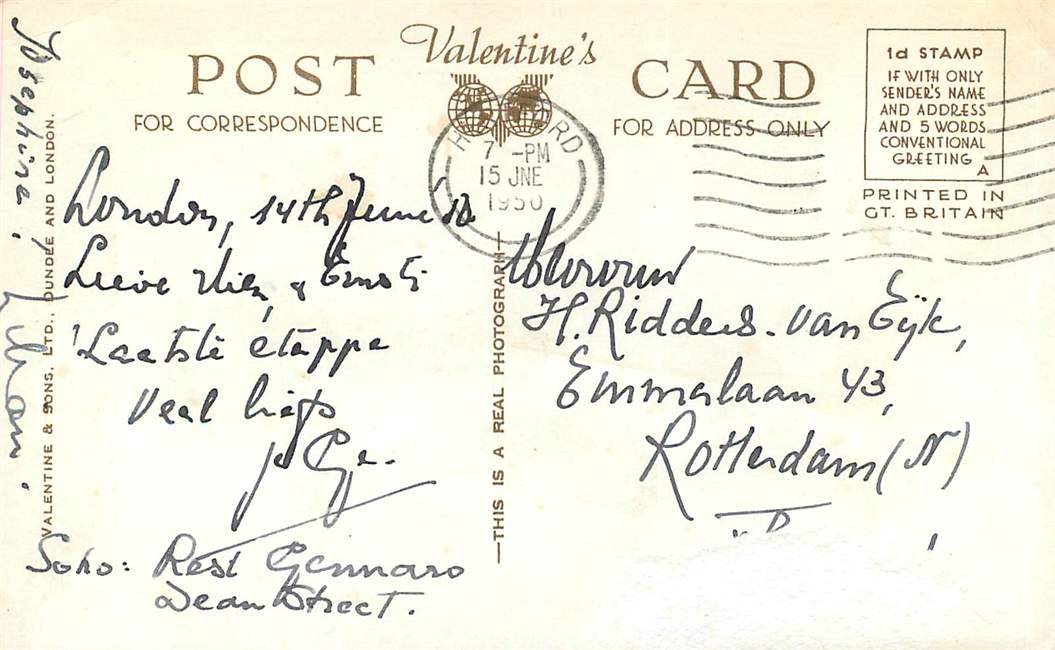 Valentine's
POST CARD
FOR CORRESPONDENCE
FOR ADDRESS ONLY
1d STAMP
IF WITH ONLY
SENDER'S NAME
AND ADDRESS
AND 5 WORDS
CONVENTIONAL
GREETING
A
PRINTED IN
GT. BRITAIN
7 -PM
15 JNE
1950
London, 14th June
Lieve &
'Laatste etappe
Veel liefs
Ge.
Soho: Rest Gennaro
Dean Street.
Mevrouw
H. Ridders-van Eijk,
Emmalaan 43,
Rotterdam (N)
Josephine!
VALENTINE & SONS, LTD., DUNDEE AND LONDON.
—THIS IS A REAL PHOTOGRAPH—